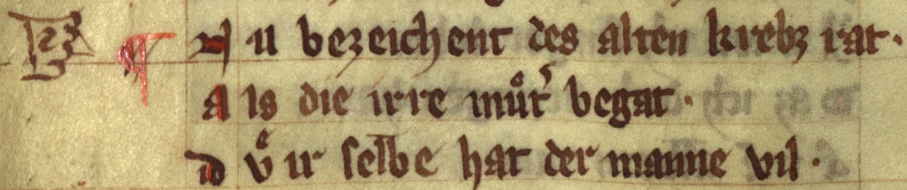 ¶ N u bezeichent des alten krebz rat·
A ls die irre muͦt͛ begat·
D vͦ ir selbe hat der manne vil·